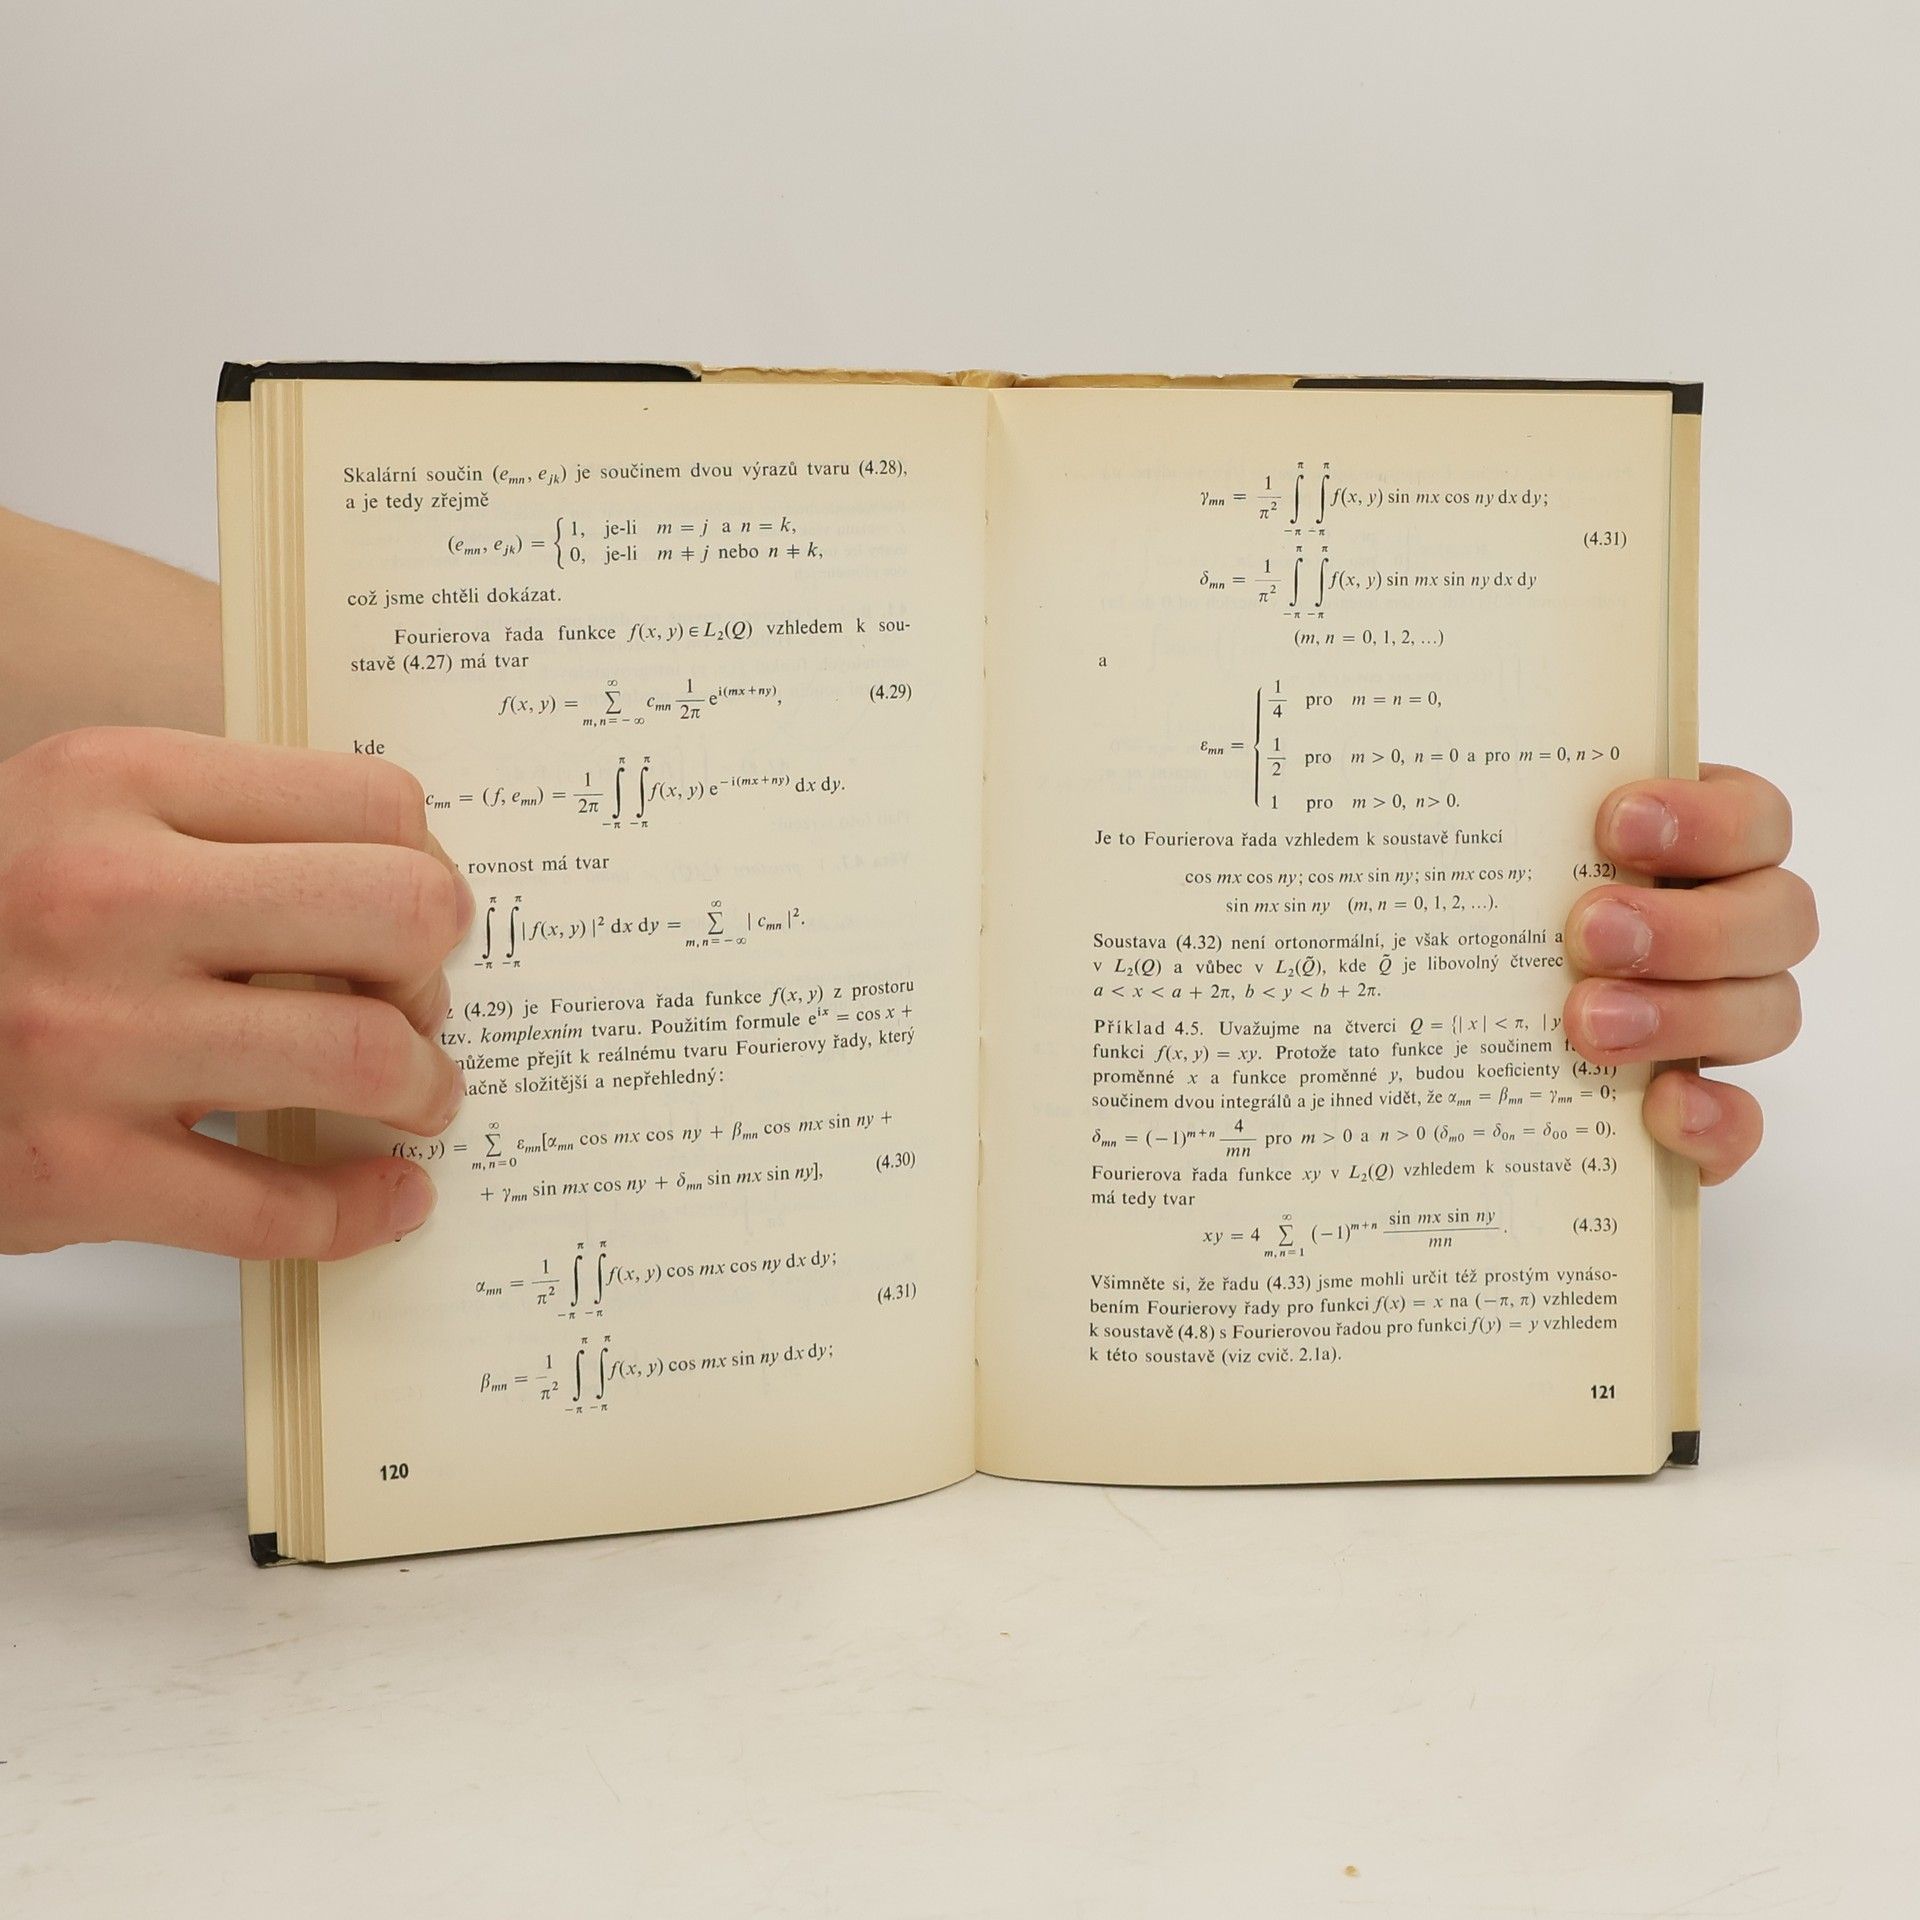 Skalární součin (eₘₙ, eⱼₖ) je součinem dvou výrazů tvaru (4.28),
a je tedy zřejmě
(eₘₙ, eⱼₖ) = { 1, je-li m = j a n = k,
0, je-li m ≠ j nebo n ≠ k,
což jsme chtěli dokázat.
Fourierova řada funkce f(x, y) ∈ L₂(Q) vzhledem k sou-
stavě (4.27) má tvar
f(x, y) = ∑_{m,n=−∞}^{∞} cₘₙ 1/2π e^{i(mx+ny)}, (4.29)
kde
cₘₙ = (f, eₘₙ) = 1/2π ∫_{−π}^{π} ∫_{−π}^{π} f(x, y) e^{−i(mx+ny)} dx dy.
rovnost má tvar
∫_{−π}^{π} ∫_{−π}^{π} | f(x, y) |² dx dy = ∑_{m,n=−∞}^{∞} | cₘₙ |².
(4.29) je Fourierova řada funkce f(x, y) z prostoru
tzv. komplexním tvaru. Použitím formule e^{ix} = cos x +
můžeme přejít k reálnému tvaru Fourierovy řady, který
složitější a nepřehledný:
f(x, y) = ∑_{m,n=0}^{∞} εₘₙ[αₘₙ cos mx cos ny + βₘₙ cos mx sin ny +
+ γₘₙ sin mx cos ny + δₘₙ sin mx sin ny], (4.30)
αₘₙ = 1/π² ∫_{−π}^{π} ∫_{−π}^{π} f(x, y) cos mx cos ny dx dy;
(4.31)
βₘₙ = 1/π² ∫_{−π}^{π} ∫_{−π}^{π} f(x, y) cos mx sin ny dx dy;
120
γₘₙ = 1/π² ∫_{−π}^{π} ∫_{−π}^{π} f(x, y) sin mx cos ny dx dy;
(4.31)
δₘₙ = 1/π² ∫_{−π}^{π} ∫_{−π}^{π} f(x, y) sin mx sin ny dx dy
(m, n = 0, 1, 2, ...)
a
εₘₙ = { 1/4 pro m = n = 0,
1/2 pro m > 0, n = 0 a pro m = 0, n > 0
1 pro m > 0, n > 0.
Je to Fourierova řada vzhledem k soustavě funkcí
cos mx cos ny; cos mx sin ny; sin mx cos ny; (4.32)
sin mx sin ny (m, n = 0, 1, 2, ...).
Soustava (4.32) není ortonormální, je však ortogonální a
v L₂(Q) a vůbec v L₂(Q̃), kde Q̃ je libovolný čtverec
a < x < a + 2π, b < y < b + 2π.
Příklad 4.5. Uvažujme na čtverci Q = {| x | < π, | y
funkci f(x, y) = xy. Protože tato funkce je součinem
proměnné x a funkce proměnné y, budou koeficienty (4.31)
součinem dvou integrálů a je ihned vidět, že αₘₙ = βₘₙ = γₘₙ = 0;
δₘₙ = (−1)^{m+n} 4/mn pro m > 0 a n > 0 (δₘ₀ = δ₀ₙ = δ₀₀ = 0).
Fourierova řada funkce xy v L₂(Q) vzhledem k soustavě (4.3)
má tedy tvar
xy = 4 ∑_{m,n=1}^{∞} (−1)^{m+n} sin mx sin ny/mn. (4.33)
Všimněte si, že řadu (4.33) jsme mohli určit též prostým vynáso-
bením Fourierovy řady pro funkci f(x) = x na (−π, π) vzhledem
k soustavě (4.8) s Fourierovou řadou pro funkci f(y) = y vzhledem
k této soustavě (viz cvič. 2.1a).
121